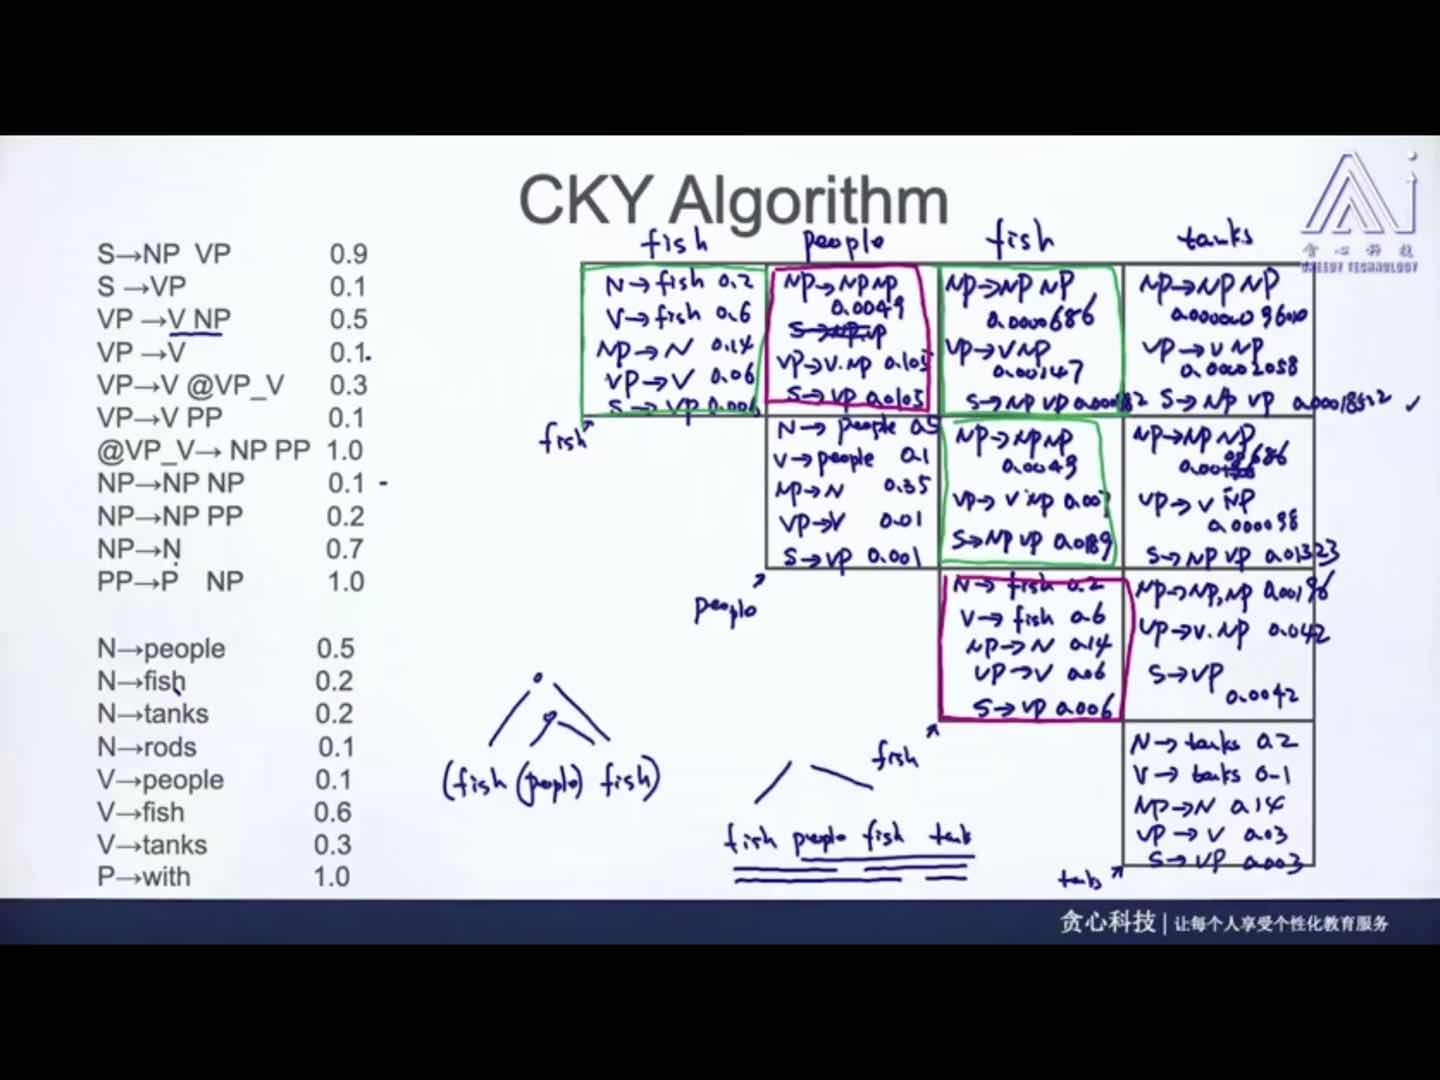 CKY Algorithm
贪心科技
GREEDY TECHNOLOGY
S→NP VP 0.9
S →VP 0.1
VP →V NP 0.5
VP →V 0.1
VP→V @VP_V 0.3
VP→V PP 0.1
@VP_V→ NP PP 1.0
NP→NP NP 0.1
NP→NP PP 0.2
NP→N 0.7
PP→P NP 1.0
N→people 0.5
N→fish 0.2
N→tanks 0.2
N→rods 0.1
V→people 0.1
V→fish 0.6
V→tanks 0.3
P→with 1.0
fish people fish tanks
N→fish 0.2
V→fish 0.6
NP→N 0.14
VP→V 0.06
S→VP 0.006
NP→NP NP
0.0049
VP→V.NP 0.105
S→VP 0.0105
NP→NP NP
0.0000686
VP→V NP
0.00147
S→NP VP 0.000882
NP→NP NP
VP→V NP
0.00002058
S→NP VP 0.00018522
fish
N→people 0.5
V→people 0.1
NP→N 0.35
VP→V 0.01
S→VP 0.001
NP→NP NP
0.0049
VP→V NP 0.007
S→NP VP 0.0189
NP→NP NP
VP→V NP
0.000098
S→NP VP 0.01323
people
N→fish 0.2
V→fish 0.6
NP→N 0.14
VP→V 0.06
S→VP 0.006
NP→NP,NP 0.00196
VP→V.NP 0.042
S→VP
0.0042
fish
N→tanks 0.2
V→tanks 0.1
NP→N 0.14
VP→V 0.03
S→VP 0.003
tanks
(fish (people) fish)
fish people fish tanks
贪心科技 | 让每个人享受个性化教育服务